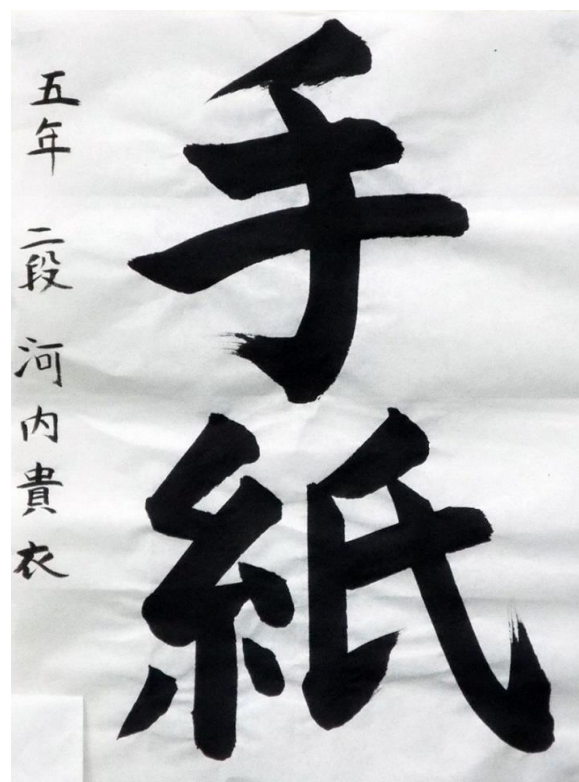 手紙
五年 二段 河内貴衣